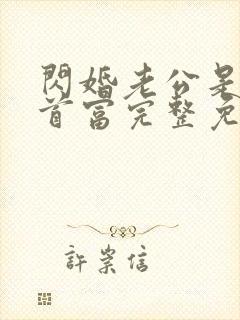 閃婚老公是
首富完整免
許崇信